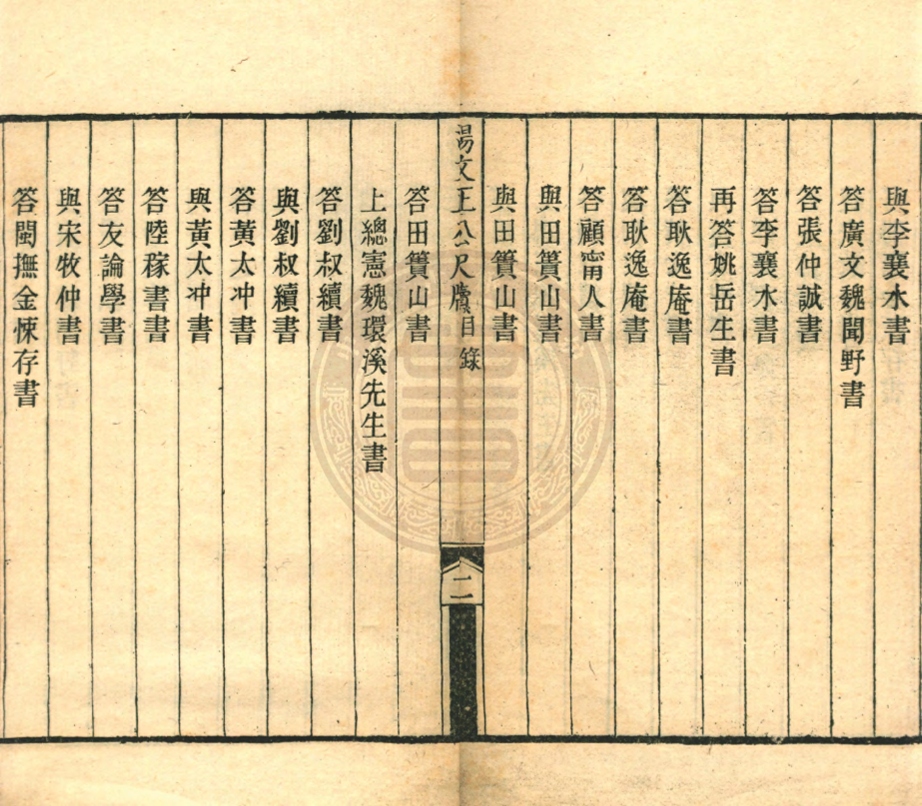 與李襄水書
答廣文魏聞野書
答張仲誠書
答李襄水書
再答姚岳生書
答耿逸庵書
答耿逸庵書
答顧甯人書
與田簣山書
與田簣山書
湯文正公尺牘目錄
二
答田簣山書
上總憲魏環溪先生書
答劉叔續書
與劉叔續書
答黃太冲書
與黃太冲書
答陸稼書書
答友論學書
與宋牧仲書
答閩撫金悚存書